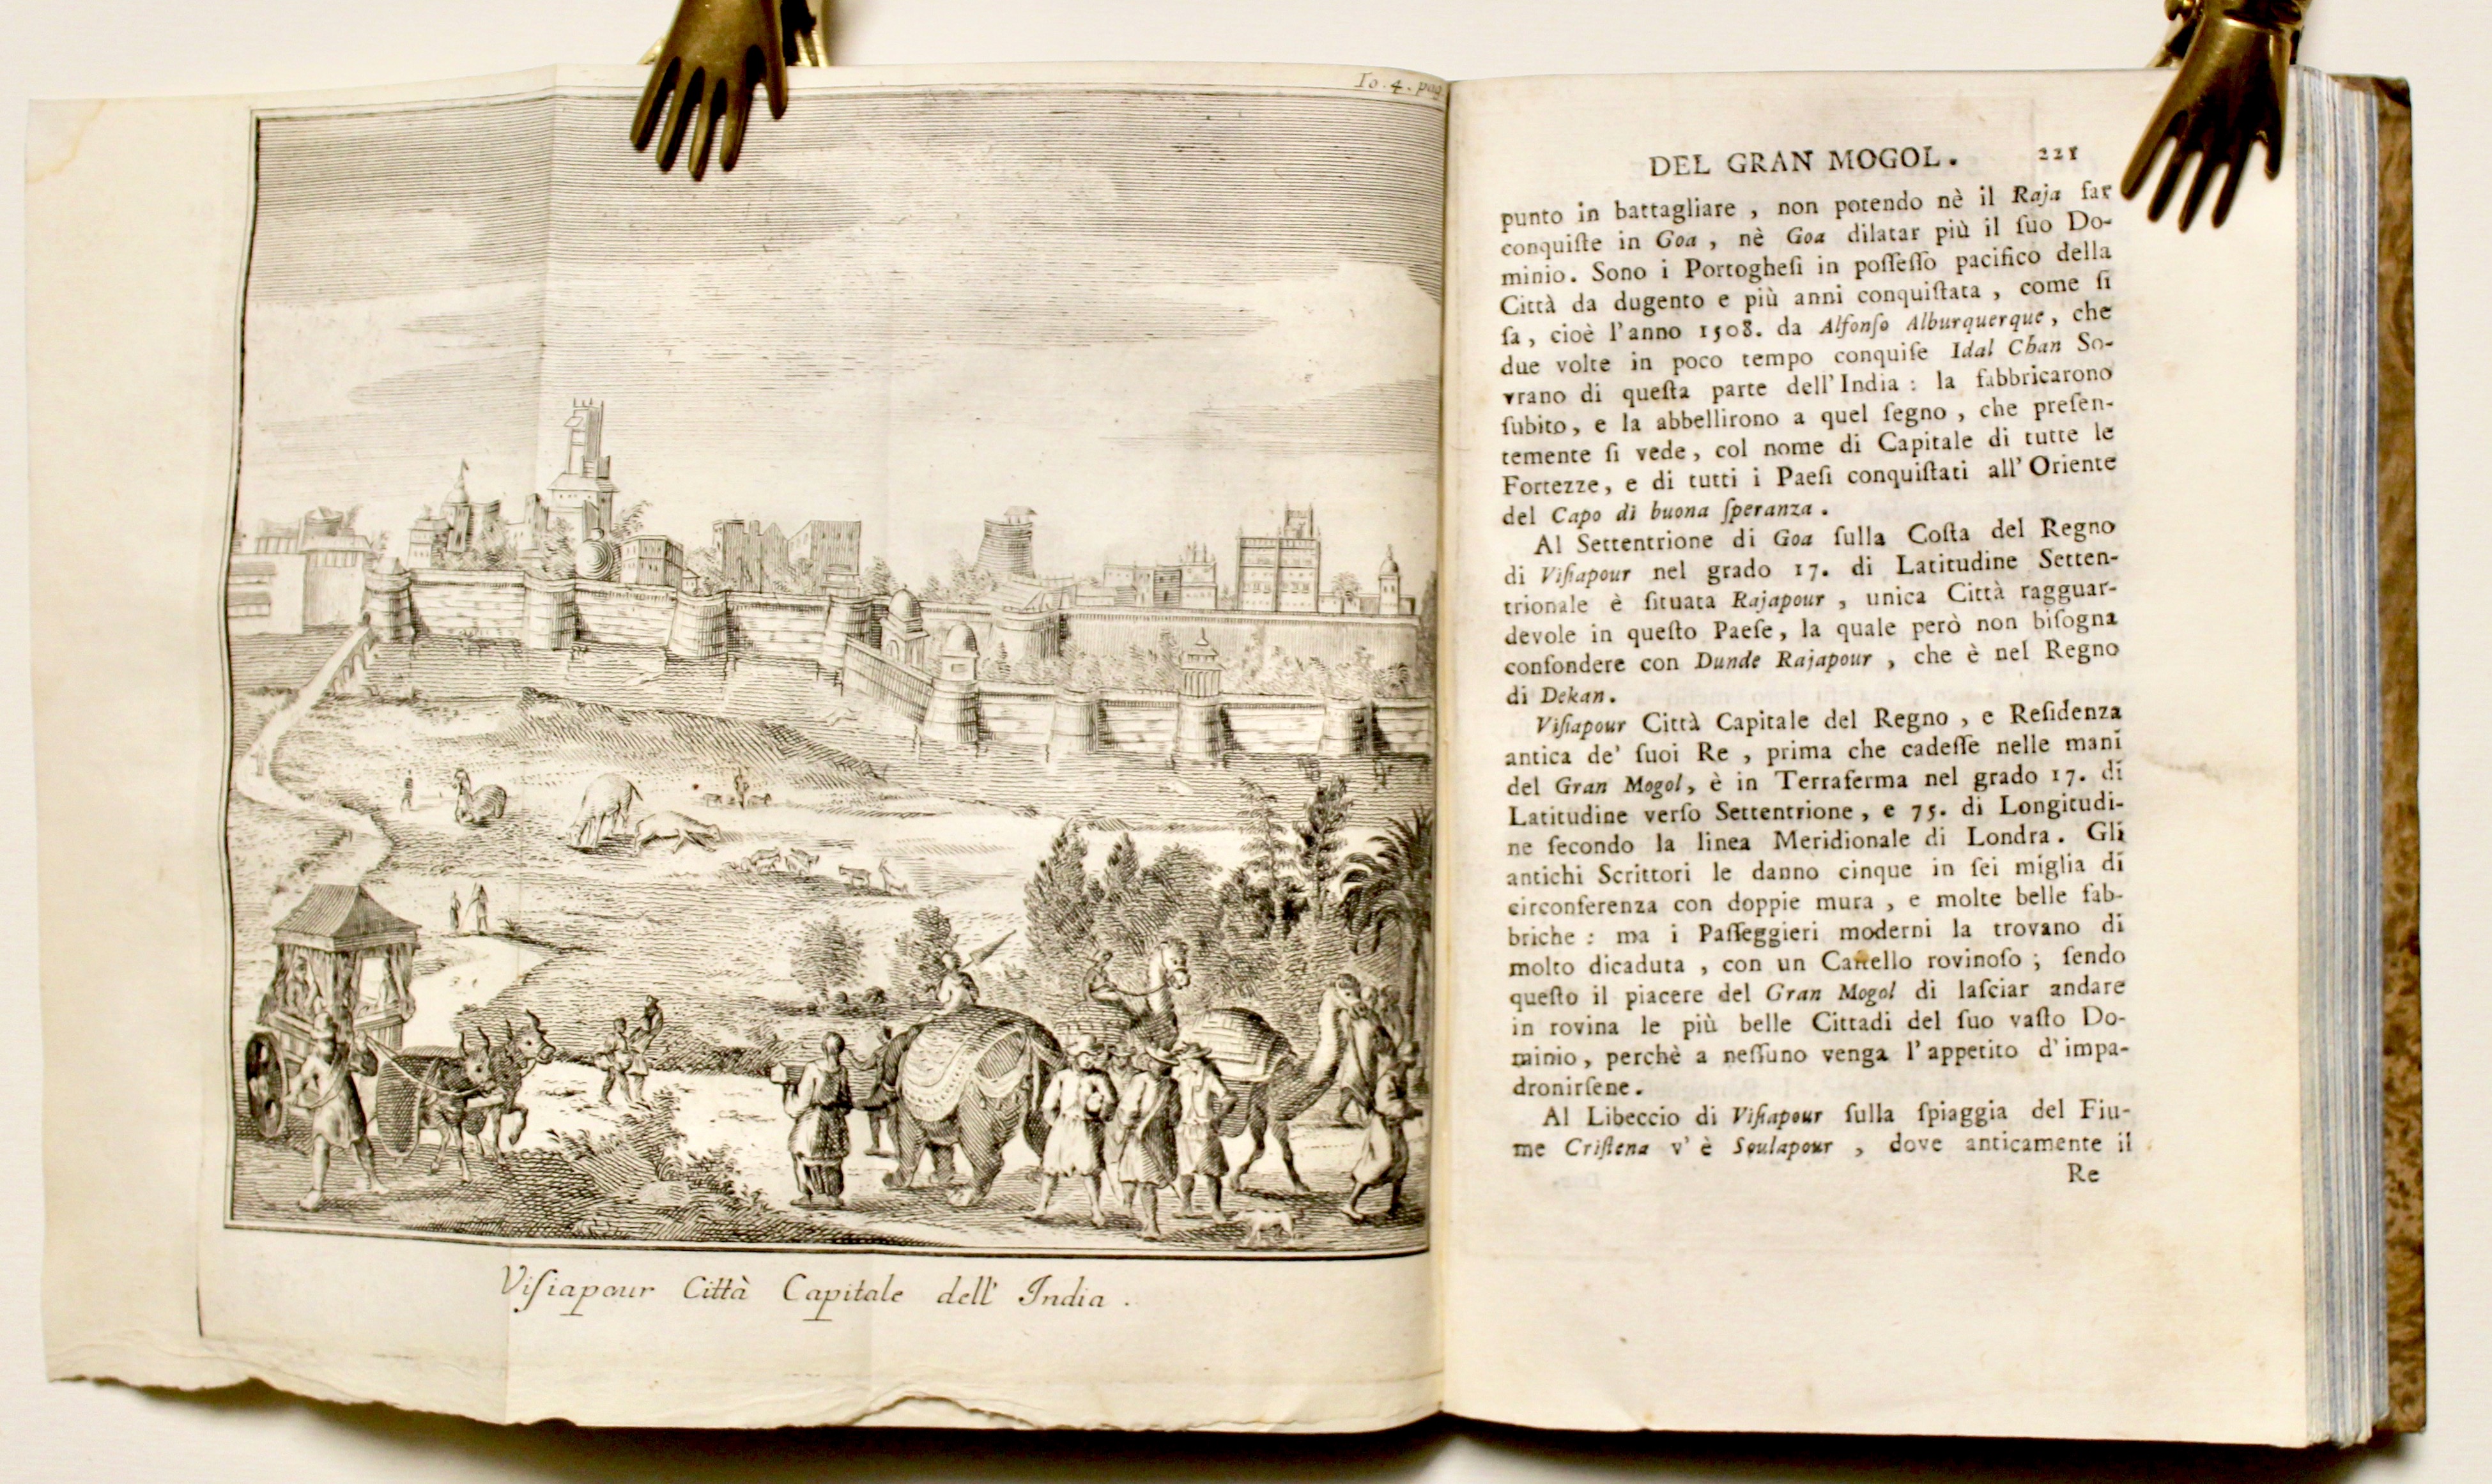 To. 4. pag.
Viſiapour Città Capitale dell' India .
DEL GRAN MOGOL. 221
punto in battagliare , non potendo nè il Raja far
conquiſte in Goa , nè Goa dilatar più il ſuo Do-
minio. Sono i Portogheſi in poſſeſſo pacifico della
Città da dugento e più anni conquiſtata , come ſi
ſa , cioè l'anno 1508. da Alfonſo Alburquerque, che
due volte in poco tempo conquiſe Idal Chan So-
vrano di queſta parte dell'India : la fabbricarono
ſubito, e la abbellirono a quel ſegno , che preſen-
temente ſi vede, col nome di Capitale di tutte le
Fortezze, e di tutti i Paeſi conquiſtati all' Oriente
del Capo di buona ſperanza .
Al Settentrione di Goa ſulla Coſta del Regno
di Viſiapour nel grado 17. di Latitudine Setten-
trionale è ſituata Rajapour , unica Città ragguar-
devole in queſto Paeſe, la quale però non biſogna
confondere con Dunde Rajapour , che è nel Regno
di Dekan.
Viſiapour Città Capitale del Regno , e Reſidenza
antica de' ſuoi Re , prima che cadeſſe nelle mani
del Gran Mogol, è in Terraferma nel grado 17. di
Latitudine verſo Settentrione, e 75. di Longitudi-
ne ſecondo la linea Meridionale di Londra . Gli
antichi Scrittori le danno cinque in ſei miglia di
circonferenza con doppie mura , e molte belle fab-
briche : ma i Paſſeggieri moderni la trovano di
molto dicaduta , con un Caſtello rovinoſo ; ſendo
queſto il piacere del Gran Mogol di laſciar andare
in rovina le più belle Cittadi del ſuo vaſto Do-
minio, perchè a neſſuno venga l'appetito d'impa-
dronirſene.
Al Libeccio di Viſiapour ſulla ſpiaggia del Fiu-
me Criſtena v' è Soulapour , dove anticamente il
Re